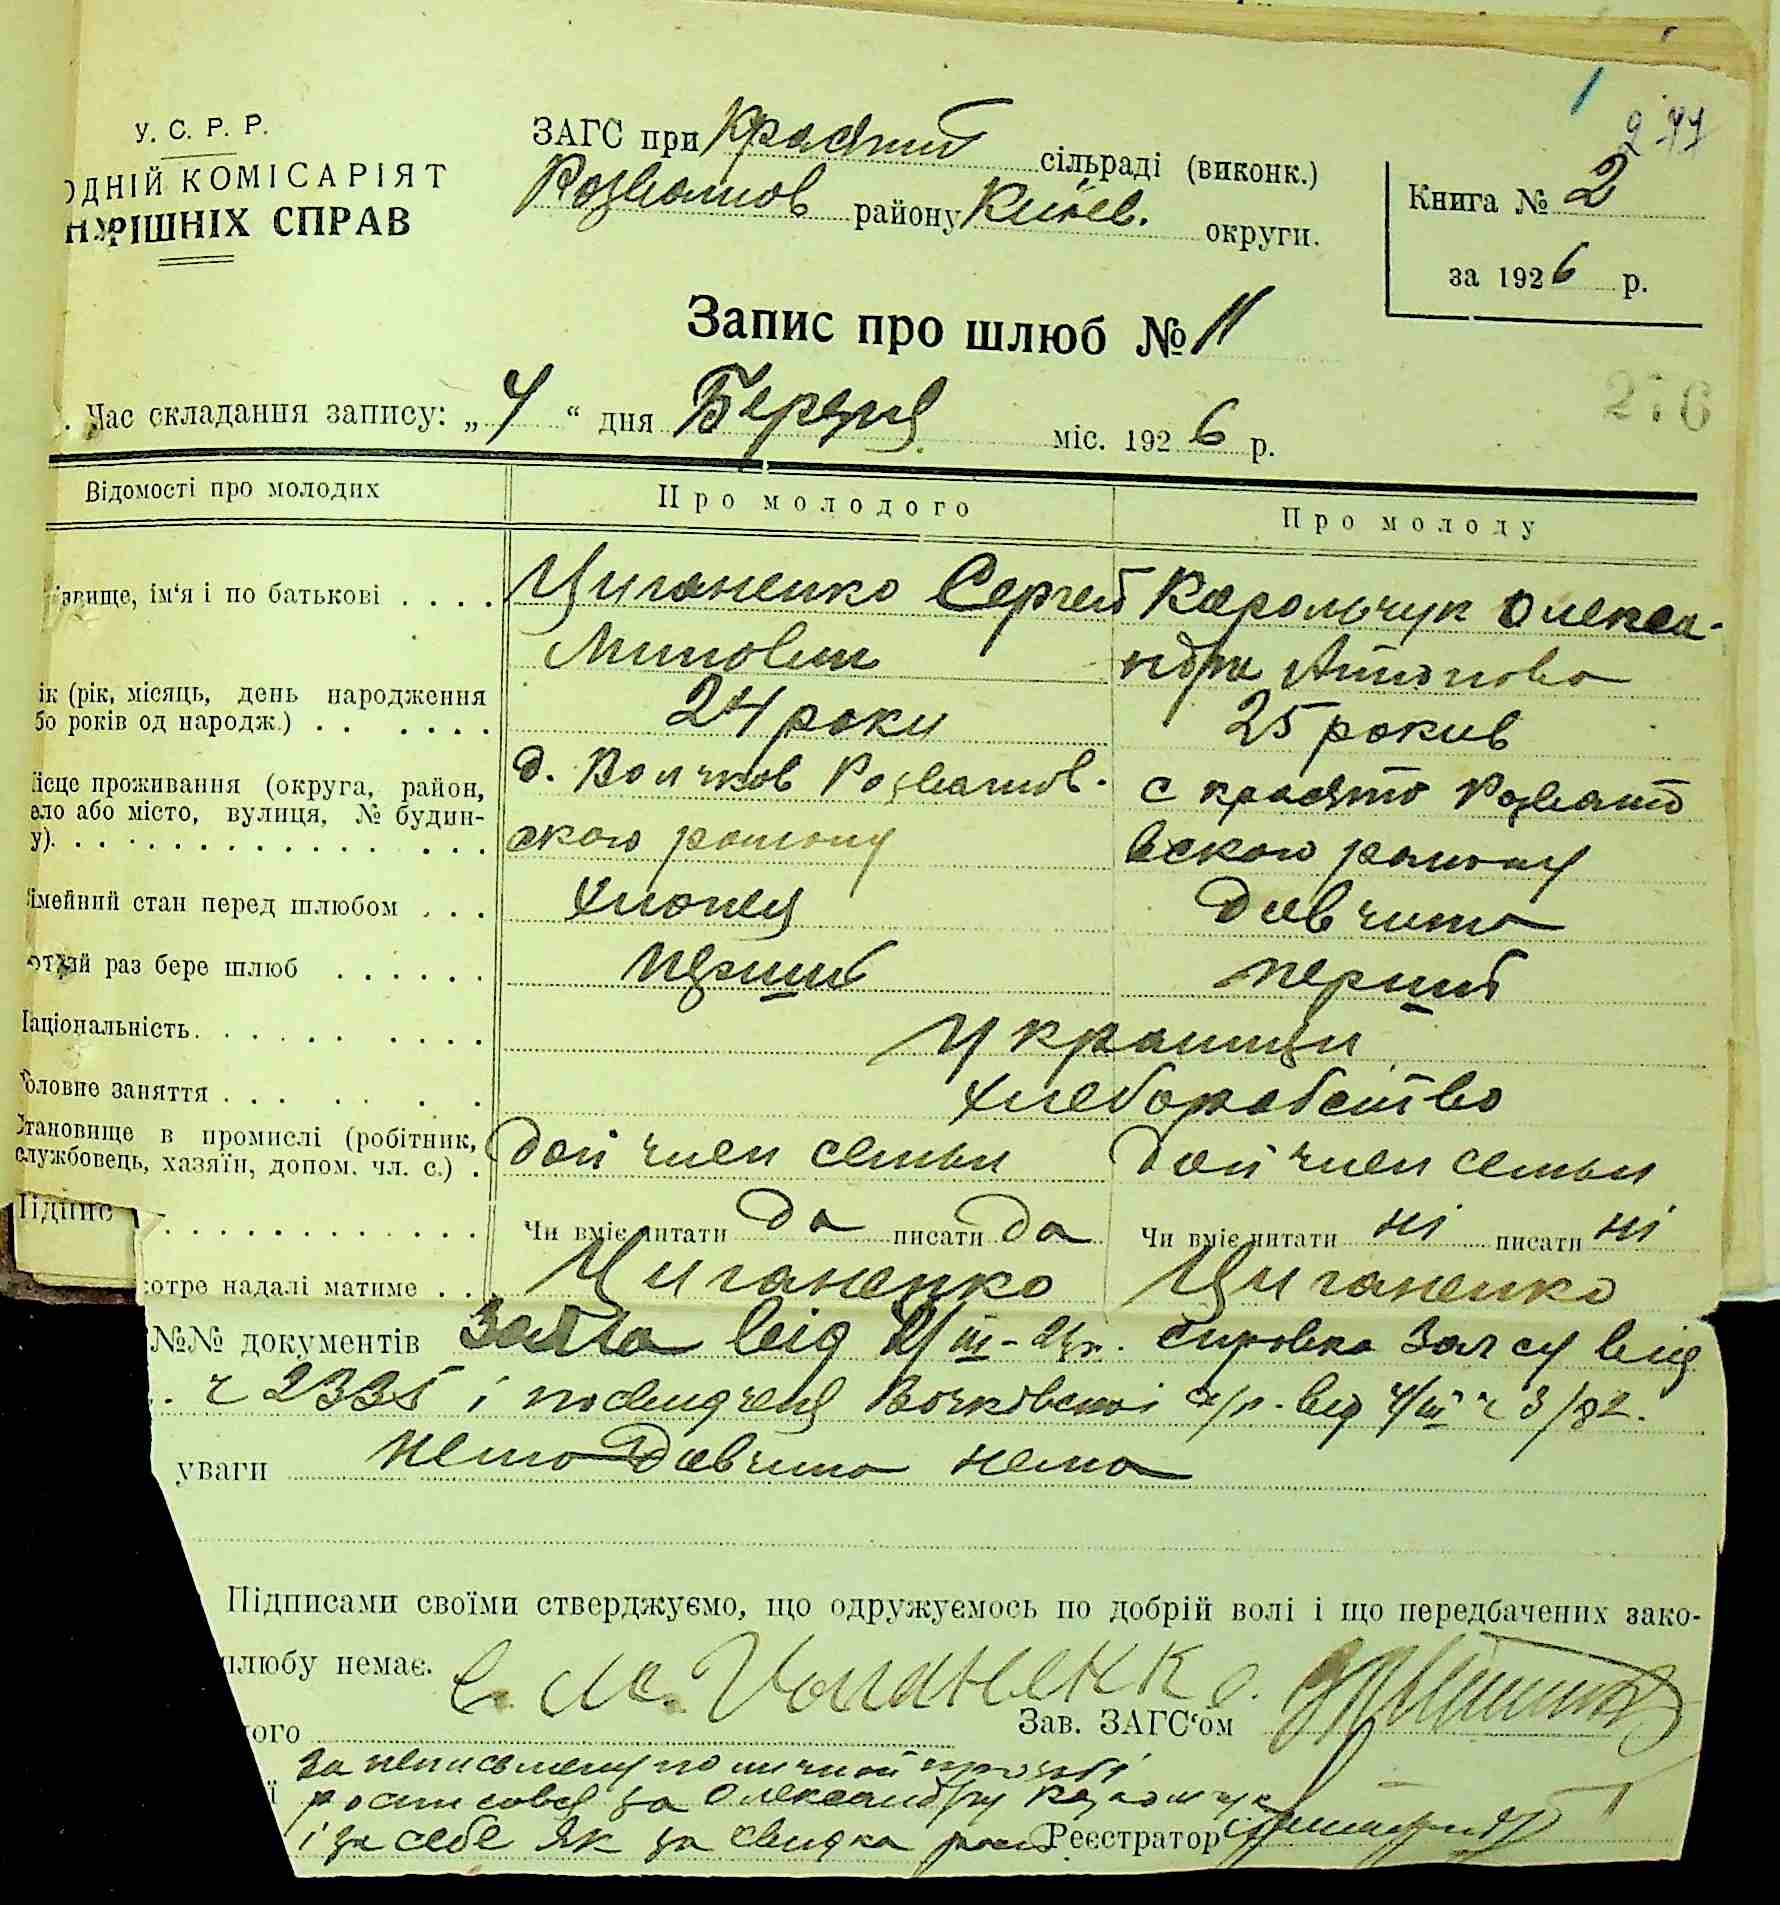 1
277
У. С. Р. Р.
ОДНІЙ КОМІСАРІЯТ
НУТРІШНІХ СПРАВ
ЗАГС при Красяті сільраді (виконк.)
Розважов району Київ. округи.
Книга № 2
за 1926 р.
Запис про шлюб № 11
276
Час складання запису: „4“ дня Березня міс. 1926 р.
Відомості про молодих Про молодого Про молоду
звище, ім'я і по батькові . . . . Циганенко Сергей Карольчук Олексан-
Минович ндра Антонова
ік (рік, місяць, день народження
бо років од народж.) . . . . . . 24 роки 25 рокив
ісце проживання (округа, район, д. Волчков Розважов- с Красято Розважо
ело або місто, вулиця, № будин-
у). ского району вского району
імейний стан перед шлюбом . . . хлопец дивчина
отрий раз бере шлюб . . . . . . перший перший
Національність. . . . . . . . . . Украинци
оловне заняття . . . . . . . хлеборобство
Становище в промислі (робітник,
службовець, хазяїн, допом. чл. с.) . Доп член семьи Доп член семьи
Підпис . . . . . . . . . . . . . Чи вміє читати да писати да Чи вміє читати ні писати ні
котре надалі матиме . . Циганенко Циганенко
№№ документів Заява від 4/III-26р. справка Загсу від
. ч 2335 і посвидченя Вочківської с/р. від 4/III ч 3/82.
уваги нема Дивчина нема
Підписами своїми стверджуємо, що одружуємось по добрій волі і що передбачених зако-
шлюбу немає. С. М. Циганенко.
ого Зав. ЗАГС'ом
за неписьмену по личной просьбі
ї росписовся за Олександру Карольчук
і за себе як за свидка Реєстратор